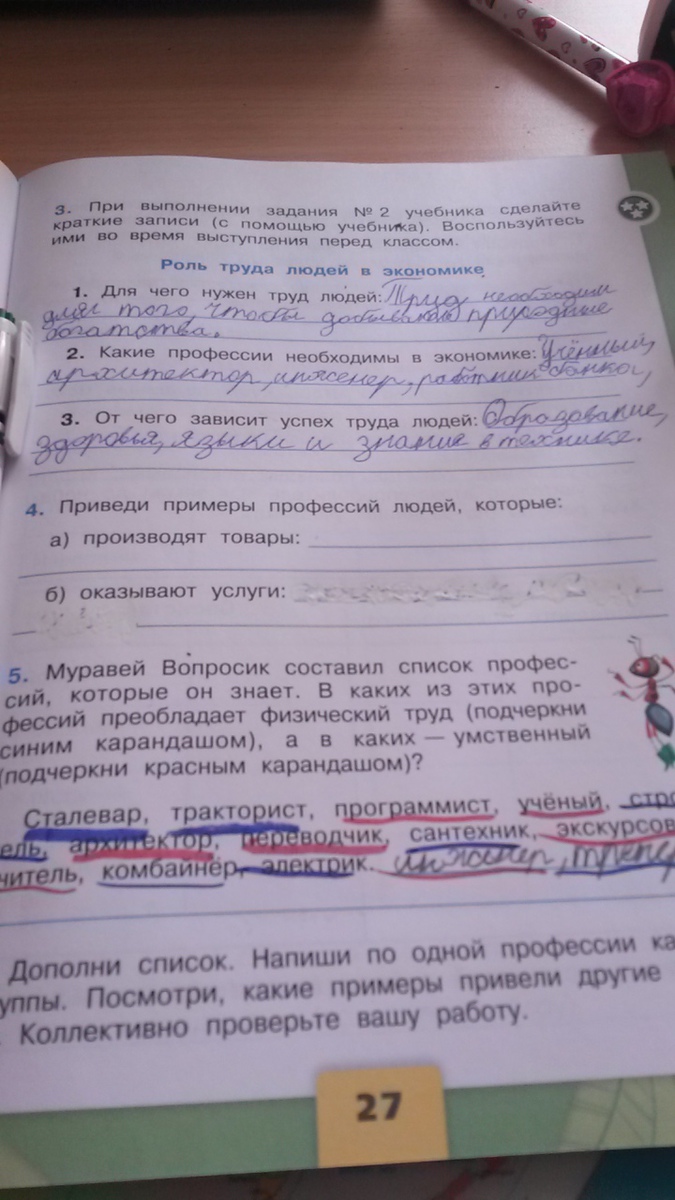 3. При выполнении задания № 2 учебника сделайте
краткие записи (с помощью учебника). Воспользуйтесь
ими во время выступления перед классом.
Роль труда людей в экономике
1. Для чего нужен труд людей: Труд необходим
для того, чтобы добывать природные
богатства.
2. Какие профессии необходимы в экономике: Учённый,
архитектор, инженер, работник банка,
3. От чего зависит успех труда людей: Образование,
здоровья, языки и знание в технике.
4. Приведи примеры профессий людей, которые:
а) производят товары:
б) оказывают услуги:
5. Муравей Вопросик составил список профес-
сий, которые он знает. В каких из этих про-
фессий преобладает физический труд (подчеркни
синим карандашом), а в каких — умственный
(подчеркни красным карандашом)?
Сталевар, тракторист, программист, учёный, стро
ель, архитектор, переводчик, сантехник, экскурсов
читель, комбайнёр, электрик. инженер, тренер
Дополни список. Напиши по одной профессии ка
уппы. Посмотри, какие примеры привели другие
. Коллективно проверьте вашу работу.
27